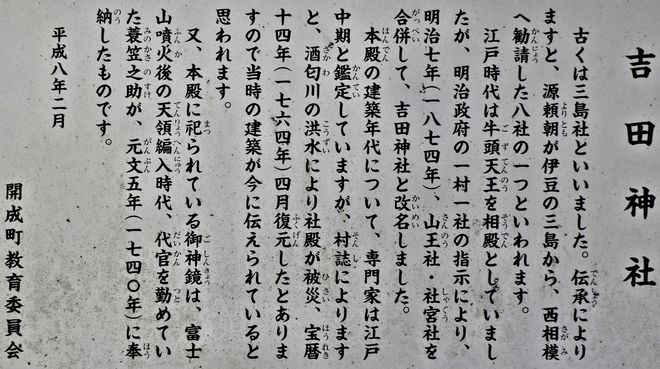 吉田神社
古くは三島社といいました。伝承により
ますと、源頼朝が伊豆の三島から、西相模
へ勧請した八社の一つといわれます。
江戸時代は牛頭天王を相殿としていまし
たが、明治政府の一村一社の指示により、
明治七年(一八七四年)、山王社・社宮社を
合併して、吉田神社と改名しました。
本殿の建築年代について、専門家は江戸
中期と鑑定していますが、村誌によります
と、酒匂川の洪水により社殿が被災、宝暦
十四年(一七六四年)四月復元したとありま
すので当時の建築が今に伝えられていると
思われます。
又、本殿に祀られている御神鏡は、富士
山噴火後の天領編入時代、代官を勤めてい
た蓑笠之助が、元文五年(一七四〇年)に奉
納したものです。
平成八年二月
開成町教育委員会